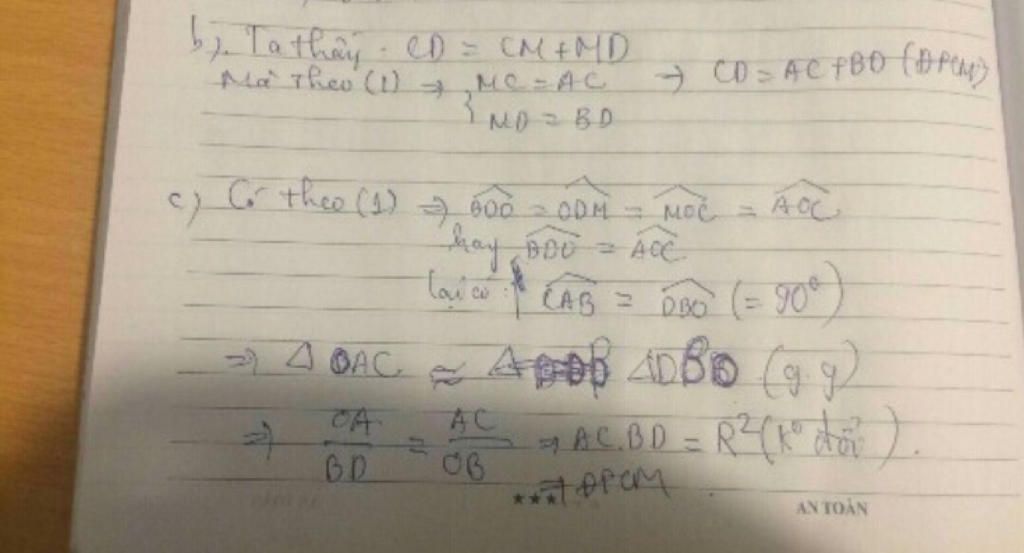 b). Ta thấy: CD = CM + MD
Mà theo (1) → { MC = AC → CD = AC + BD (ĐPCM)
MD = BD
c) Có theo (1) ⇒ BDO = ODM = MOC = AOC
hay BDO = AOC
lại có: CAB = DBO (= 90°)
⇒ Δ OAC ≈ Δ ΔDBO (g.g)
⇒ OA/BD = AC/OB → AC.BD = R² (k° đổi).
→ ĐPCM.
★★★
AN TOÀN